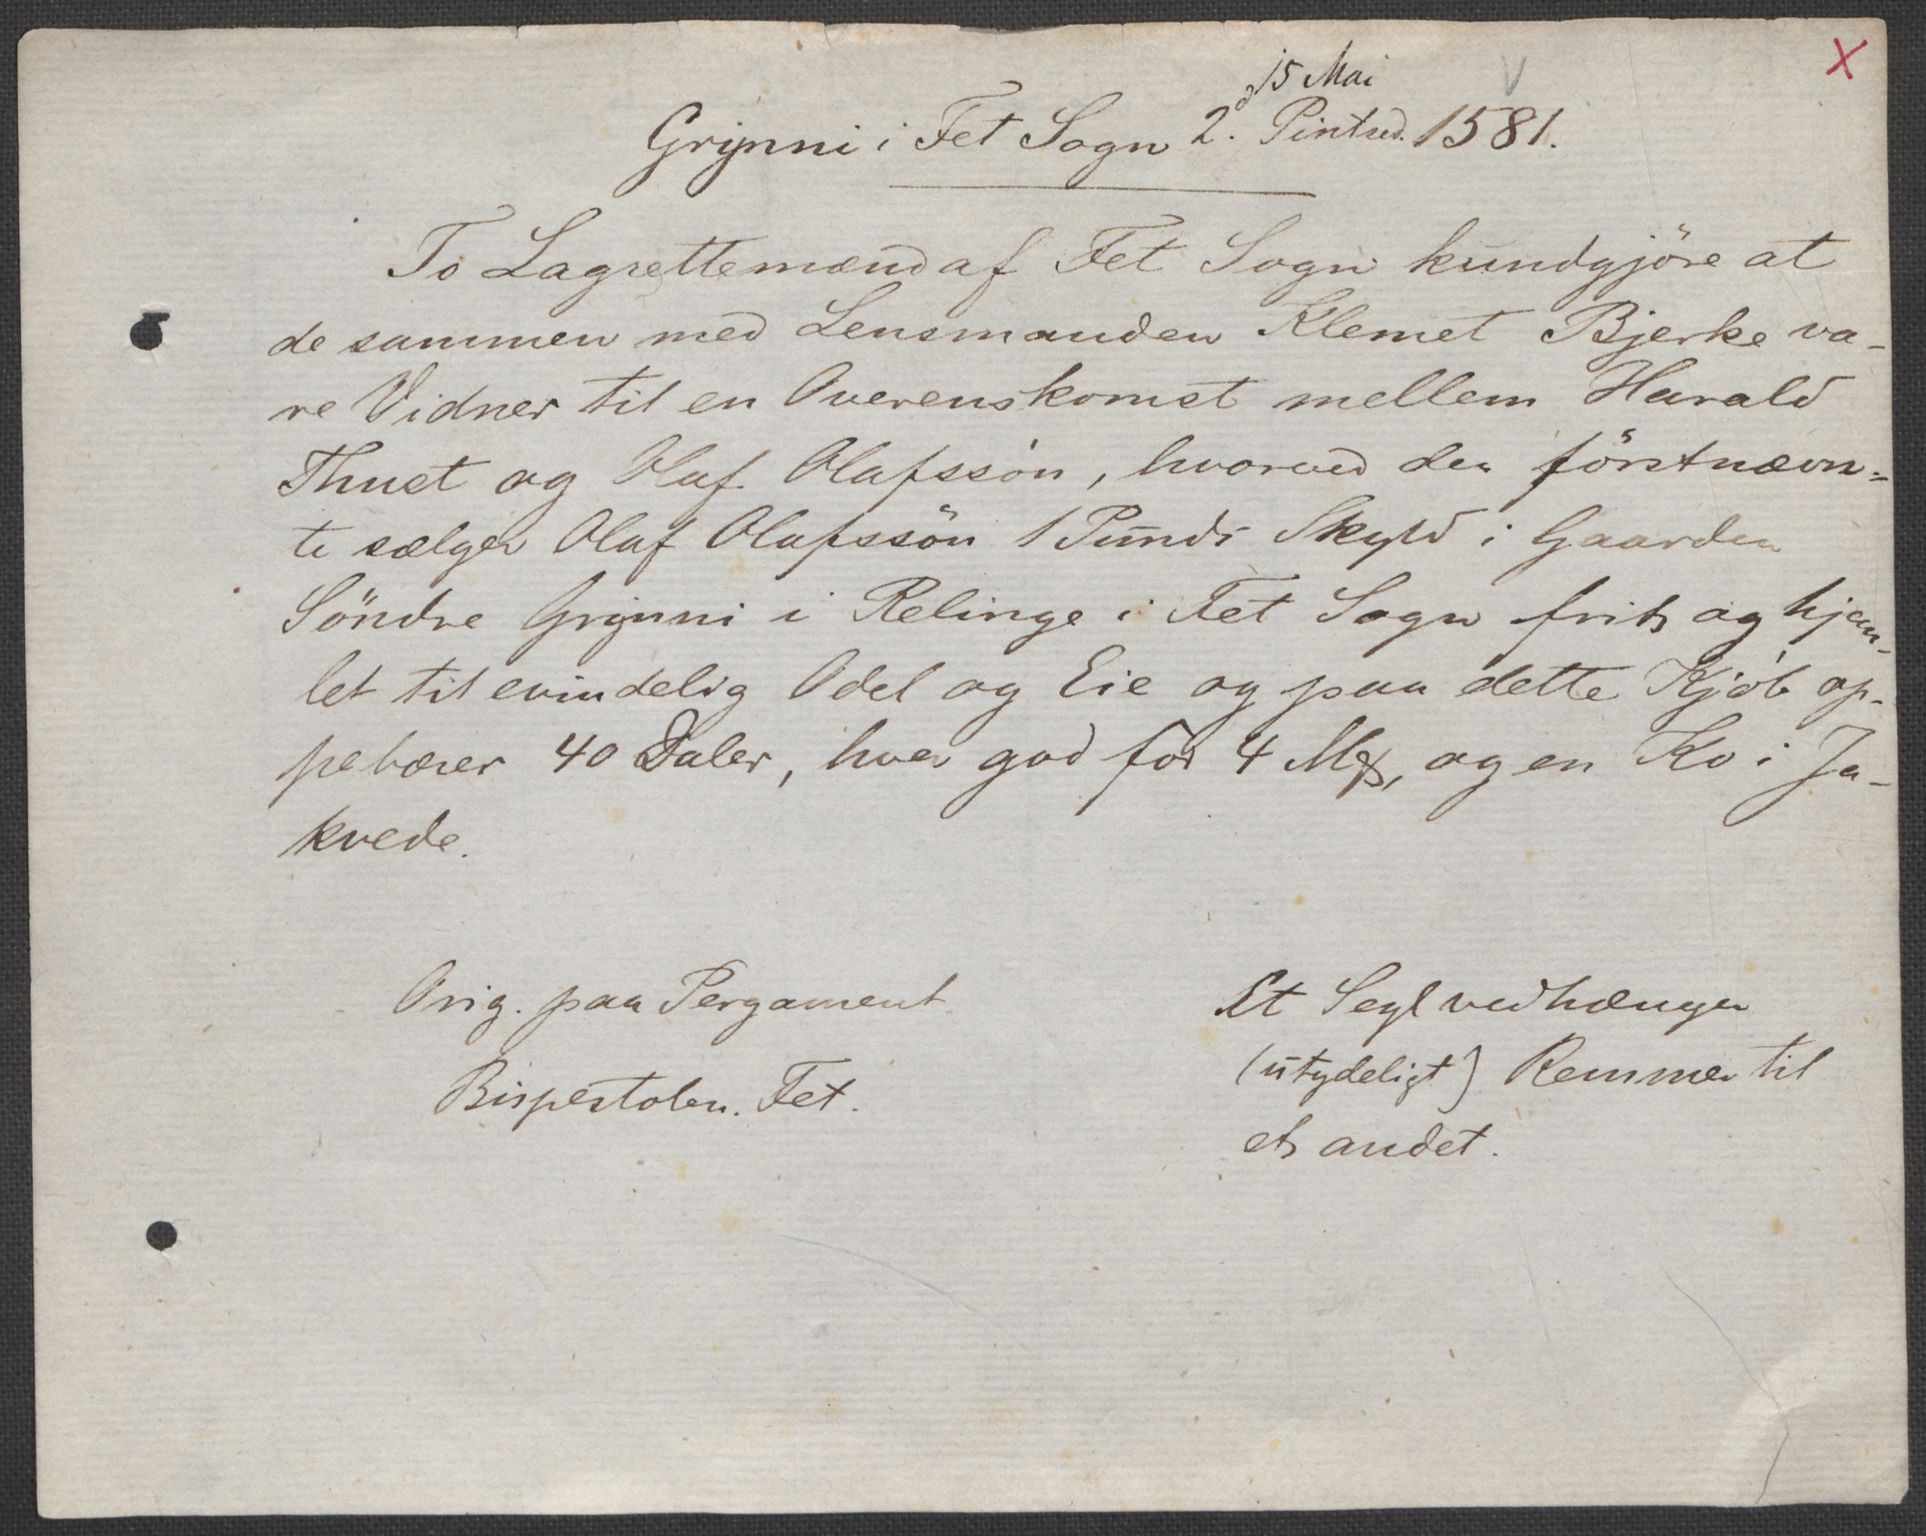 15 Mai
Grynni i Fet Sogn 2. Pintsed. 1581.
To Lagrettemænd af Fet Sogn kundgjöre at
de sammen med Lensmanden Klemet Bjerke va-
re Vidner til en Overenskomst mellem Harald
Thuet og Olaf Olafssön, hvorved den förstnævn-
te sælger Olaf Olafssön 1 Punds Skyld i Gaarden
Söndre Grynni i Relinge i Fet Sogn frit og hjem-
let til evindelig Odel og Eie og paa dette Kjöb op-
pebærer 40 Daler, hver god for 4 Mk, og en Ko i Ja-
kvede.
Orig. paa Pergament
Bispestolen. Fet.
Et Segl vedhænger
(utydeligt) Remmer til
et andet.